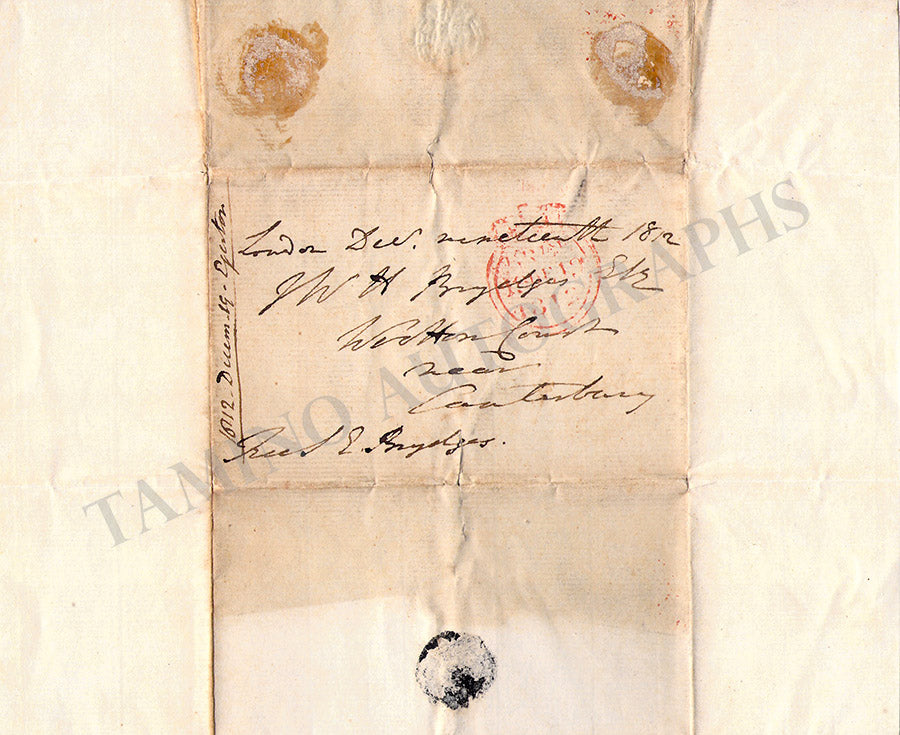 London Dec. nineteenth 1812
J W H Brydges Esq
Wootton Court
near
Canterbury
Free S E. Brydges.
1812 - Decem. 19 - Egerton
FREE
1812
TAMINO AUTOGRAPHS